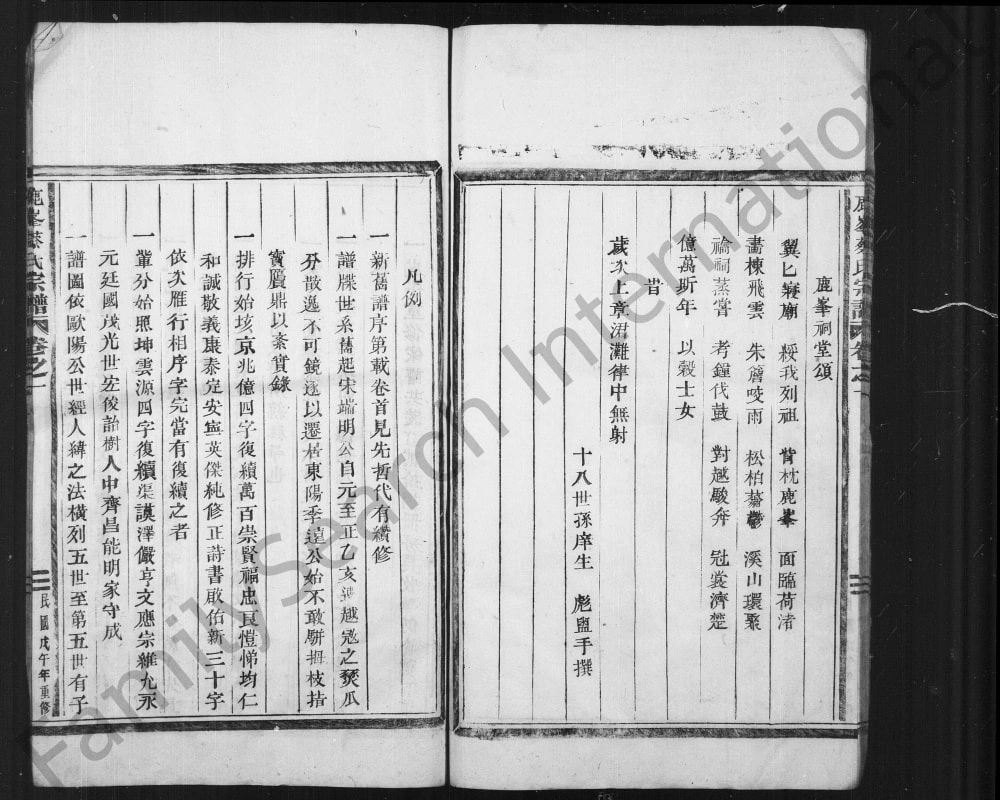 鹿峯祠堂頌
翼匕寢廟　綏我列祖　背枕鹿峯　面臨荷渚
畵棟飛雲　朱簷啖雨　松柏蓊鬱　溪山環聚
禴祠蒸嘗　考鐘伐鼓　對越駿奔　冠裳濟楚
億萬斯年　以穀士女
旹
歲次上章涒灘律中無射
十八世孫庠生　彪盥手撰
鹿峯蔡氏宗譜　卷之一
凡例
一新舊譜序第載卷首見先哲代有纘修
一譜牒世系舊起宋端明公自元至正乙亥遭越寇之燹瓜
分散逸不可鏡逐以遷居東陽季遠公始不敢駢拇枝指
實贋鼎以紊實錄
一排行始垓京兆億四字復續萬百崇賢福忠良愷悌均仁
和誠敬義康泰定安寧英傑純修正詩書啟佑新三十字
依次雁行相序字完當有復續之者
一輩分始照坤雲源四字復續渠謨澤儼亨文應宗維九永
元廷國茂光世宏俊詒樹人中齊昌能明家守成
一譜圖依歐陽公世經人緯之法橫列五世至第五世有子
鹿峯蔡氏宗譜　卷之一
民國戊午年重修
FamilySearch International